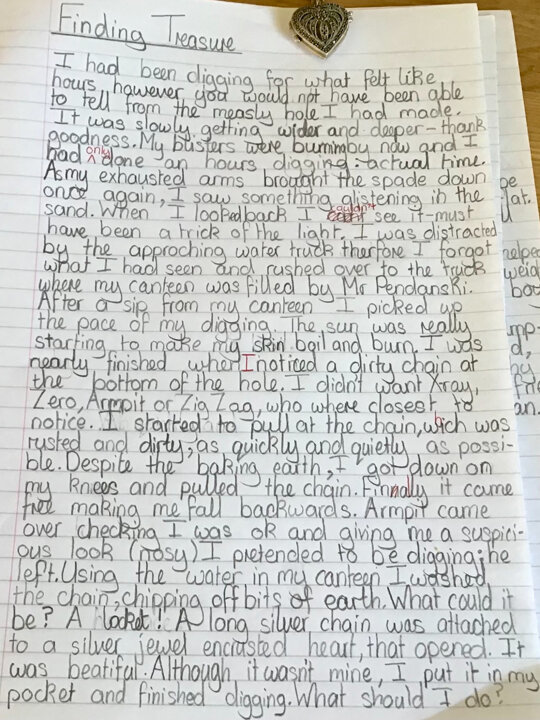 Finding Treasure
I had been digging for what felt like
hours however you would not have been able
to tell from the measly hole I had made.
It was slowly getting wider and deeper - thank
goodness. My busters were burning by now and I
had only done an hours digging : actual time.
As my exhausted arms brought the spade down
once again, I saw something glistening in the
sand. When I looked back I couldn't see it - must
have been a trick of the light. I was distracted
by the approching water truck therfore I forgot
what I had seen and rushed over to the truck
where my canteen was filled by Mr Pendanski.
After a sip from my canteen I picked up
the pace of my digging. The sun was really
starting to make my skin bail and burn. I was
nearly finished when I noticed a dirty chain at
the bottom of the hole. I didn't want Xray,
Zero, Armpit or Zig Zag, who where closest to
notice. I started to pull at the chain, wich was
rusted and dirty, as quickly and quietly as possi-
ble. Despite the baking earth, I got down on
my knees and pulled the chain. Finnally it came
free making me fall backwards. Armpit came
over checking I was ok and giving me a suspici-
ous look (nosy) I pretended to be digging; he
left. Using the water in my canteen I washed
the chain, chipping off bits of earth. What could it
be? A locket! A long silver chain was attached
to a silver jewel encrusted heart, that opened. It
was beatiful. Although, it wasn't mine, I put it in my
pocket and finished digging. What should I do?